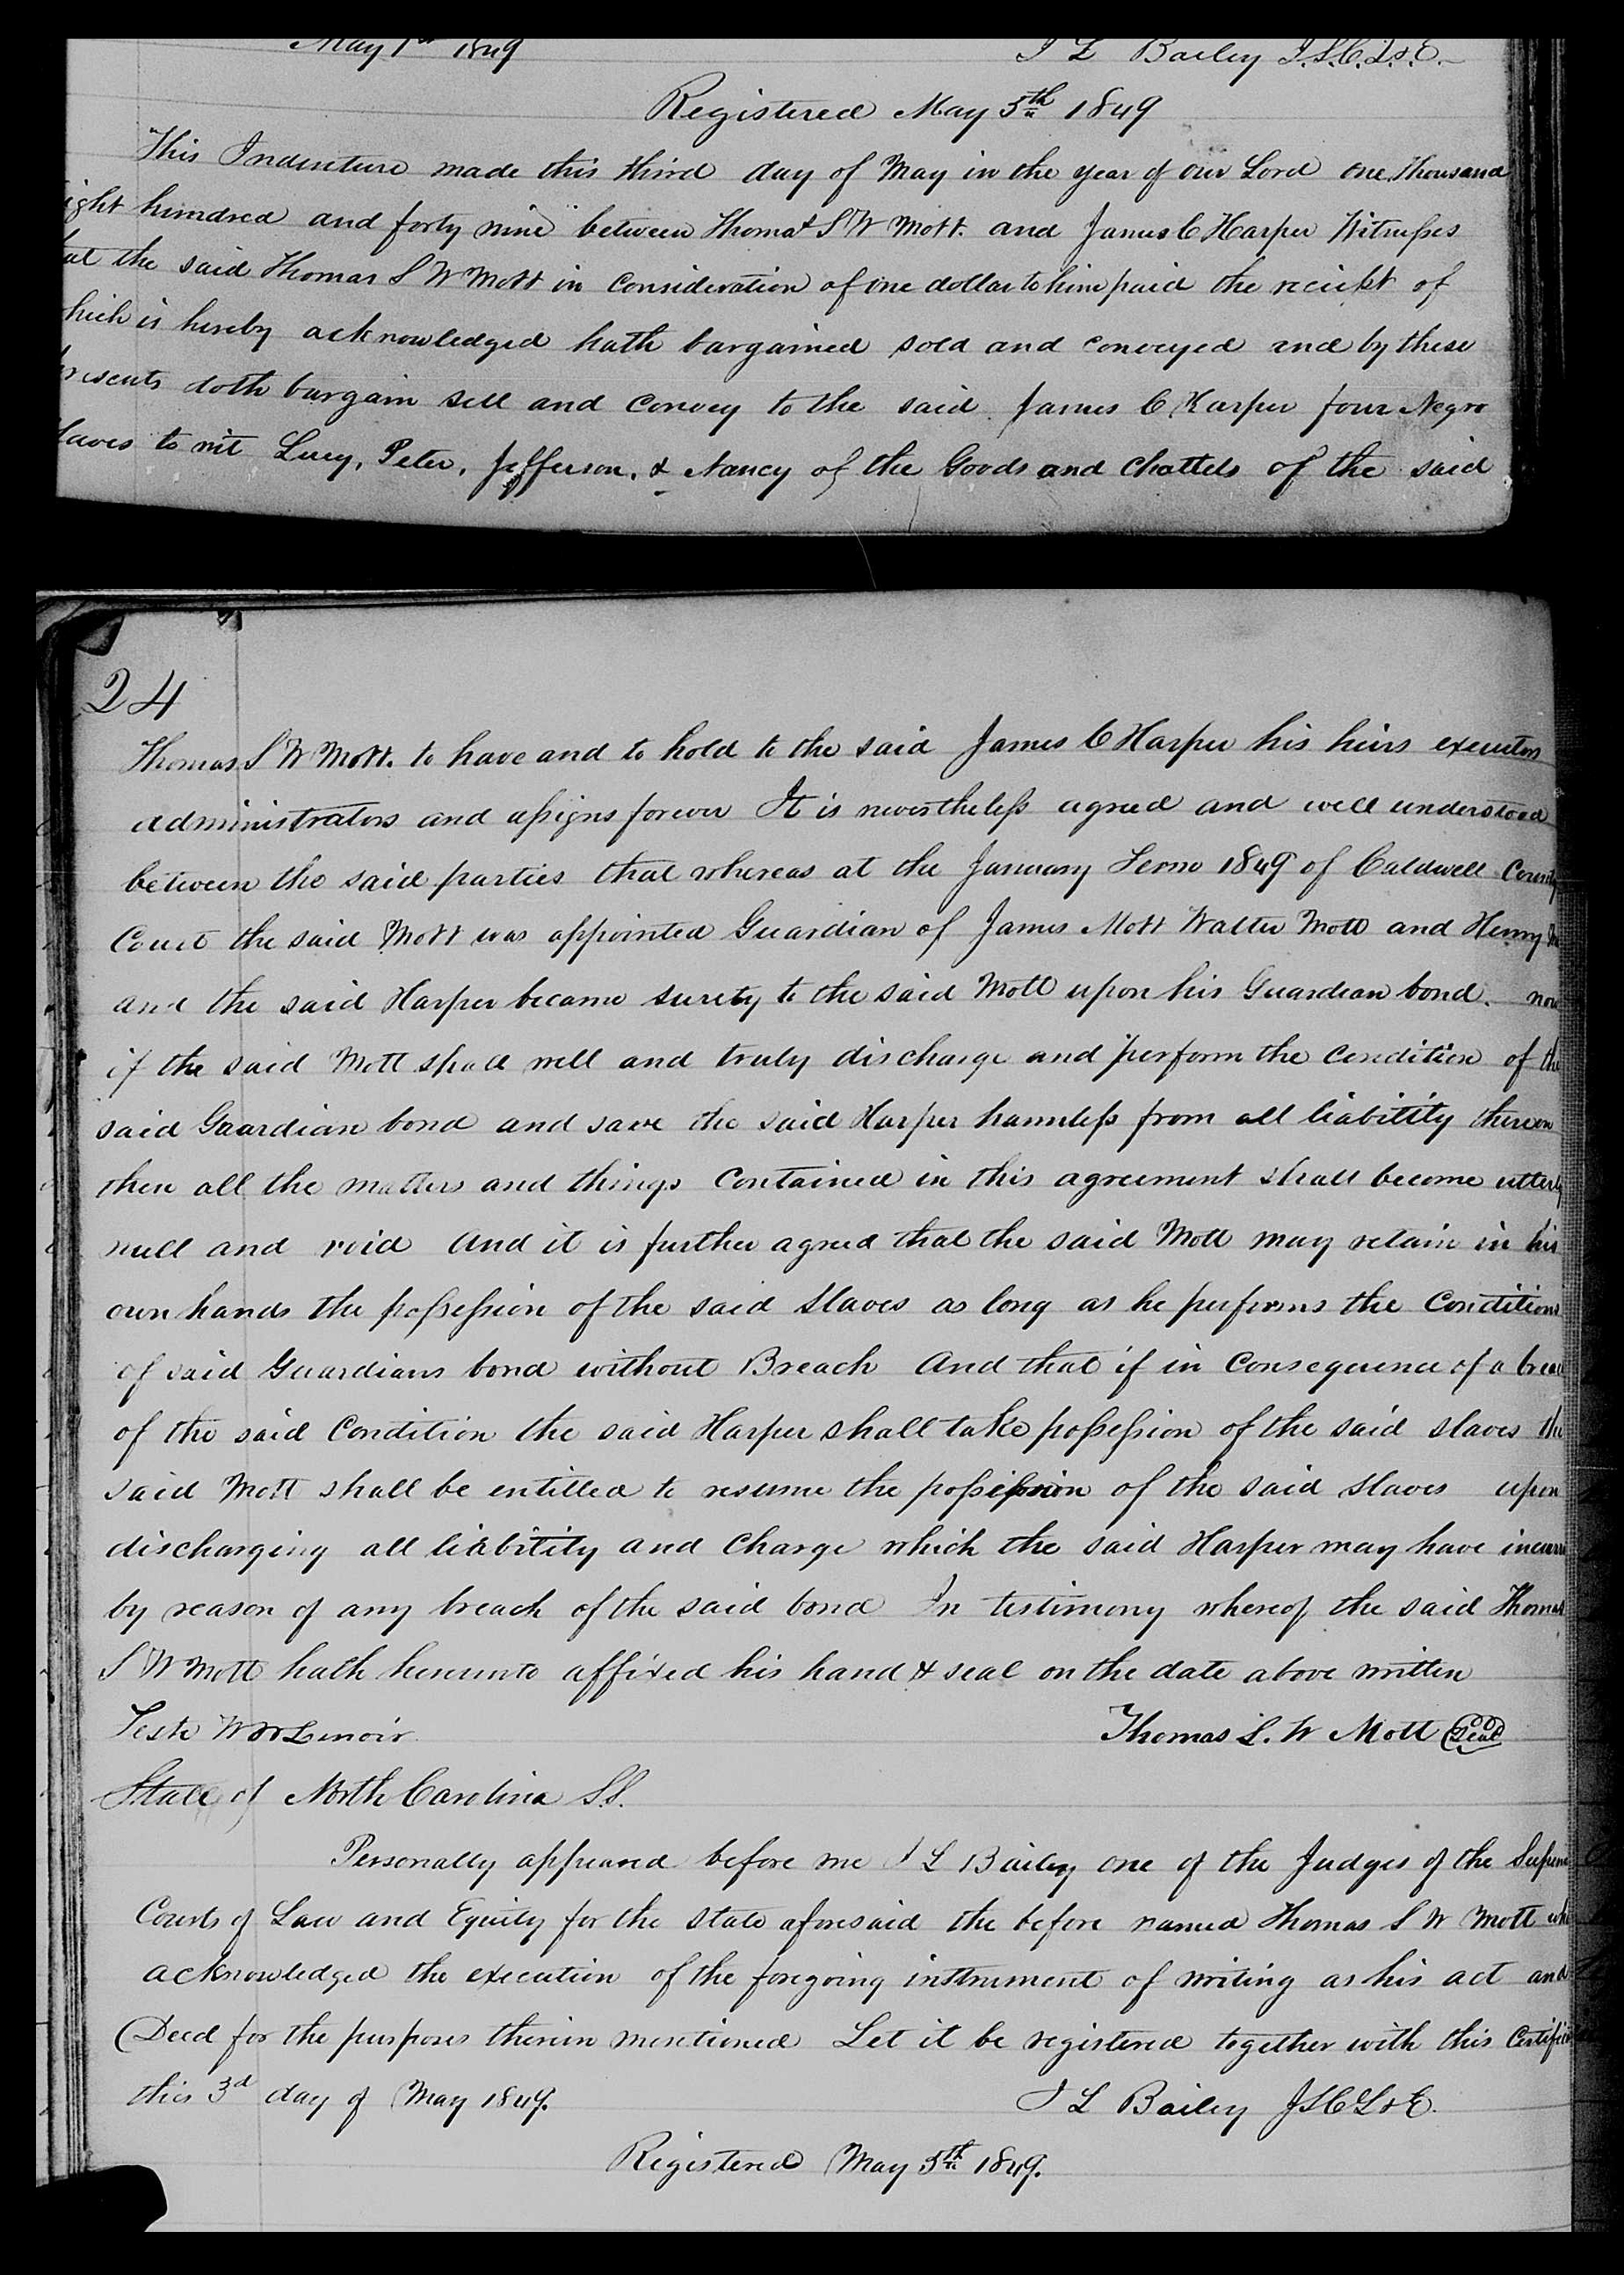 May 1st 1849 J L Bailey J.S.C.L.&E.
Registered May 5th 1849
This Indenture made this third day of May in the year of our Lord one thousand
ight hundred and forty nine between Thomas S W Mott. and James C Harper Witnesses
hat the said Thomas S W Mott in Consideration of one dollar to him paid the reciept of
hich is hereby acknowledged hath bargained sold and conveyed and by these
presents doth bargain sell and convey to the said James C Harper four Negro
laves to wit Lucy, Peter, Jefferson, & Nancy of the Goods and Chattels of the said
24
Thomas S W Mott. to have and to hold to the said James C Harper his heirs executors
administrators and assigns forever It is nevertheless agreed and well understood
between the said parties that whereas at the January Term 1849 of Caldwell County
Court the said Mott was appointed Guardian of James Mott Walter Mott and Henry
and the said Harper became surety to the said Mott upon his Guardian bond. now
if the said Mott shall well and truly discharge and perform the condition of the
said Guardian bond and save the said Harper harmless from all liability thereon
then all the matters and things Contained in this agreement shall become utterly
null and void And it is further agreed that the said Mott may retain in his
own hands the possession of the said Slaves as long as he performs the Conditions
of said Guardians bond without Breach And that if in Consequence of a breac
of the said Condition the said Harper shall take possession of the said slaves the
said Mott shall be entitled to resume the possession of the said Slaves upon
discharging all liability and Charge which the said Harper may have incurre
by reason of any breach of the said bond In testimony whereof the said Thomas
S W Mott hath hereunto affixed his hand & seal on the date above written
Teste W W Lenoir Thomas S. W Mott Seal
State of North Carolina S.S.
Personally appeared before me J L Bailey one of the Judges of the Superi
Courts of Law and Equity for the State aforesaid the before named Thomas S W Mott who
acknowledged the execution of the foregoing instrument of writing as his act and
Deed for the purposes therein mentioned Let it be registered together with this Certific
this 3d day of May 1849. J L Bailey J S C L & E.
Registered May 5th 1849.